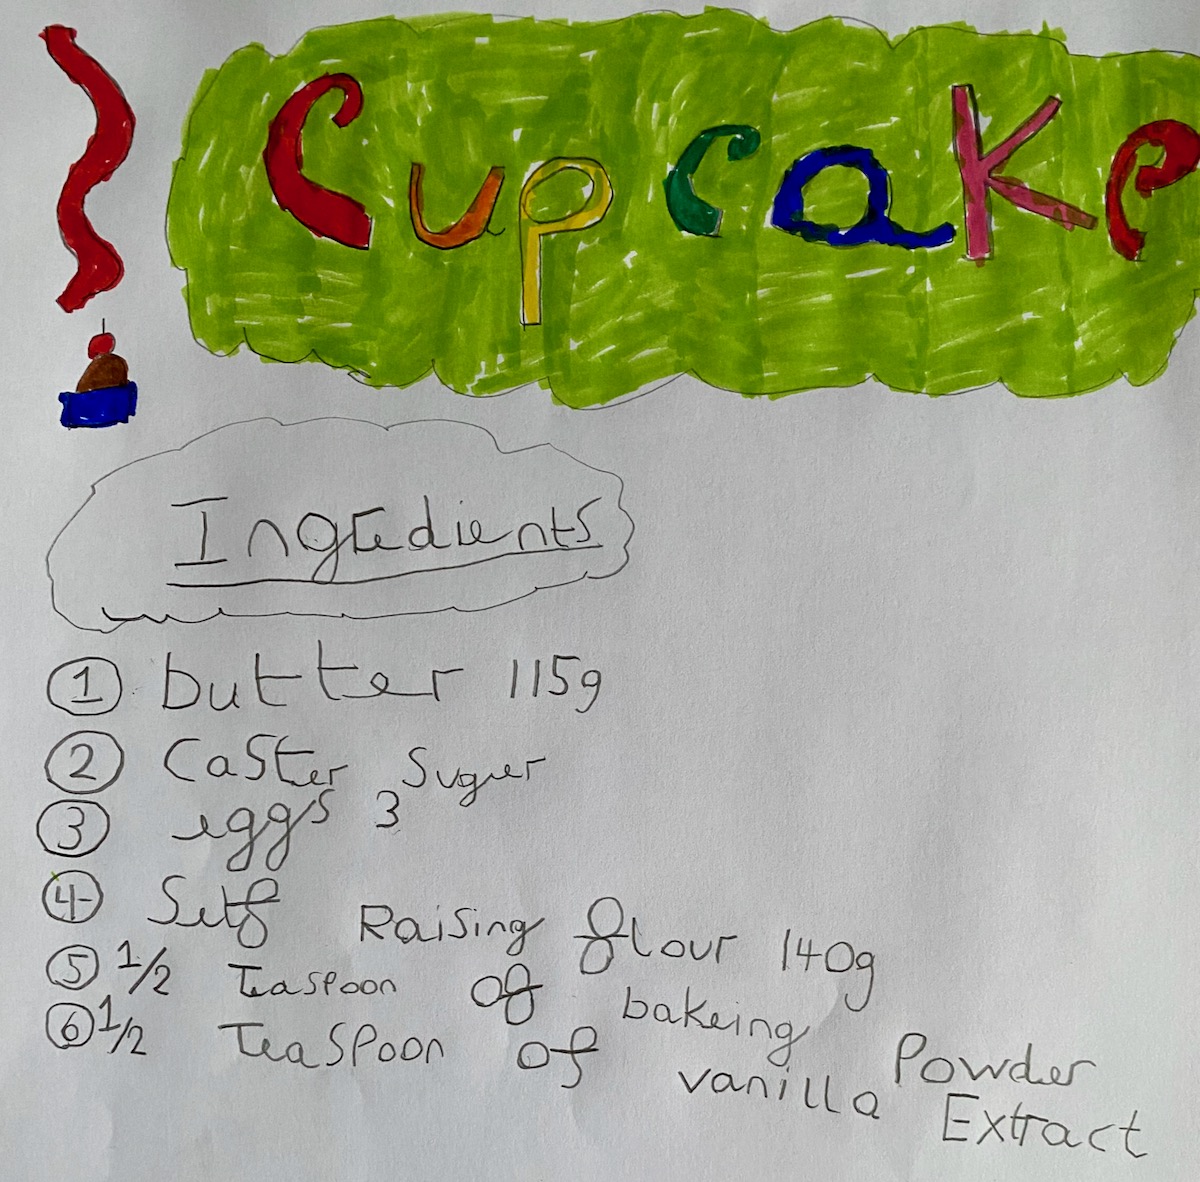 Cupcake
Ingredients
1 butter 115g
2 Caster Suguer
3 eggs 3
4 Self Raising flour 140g
5 1/2 Teaspoon of bakeing Powder
6 1/2 Teaspoon of vanilla Extract